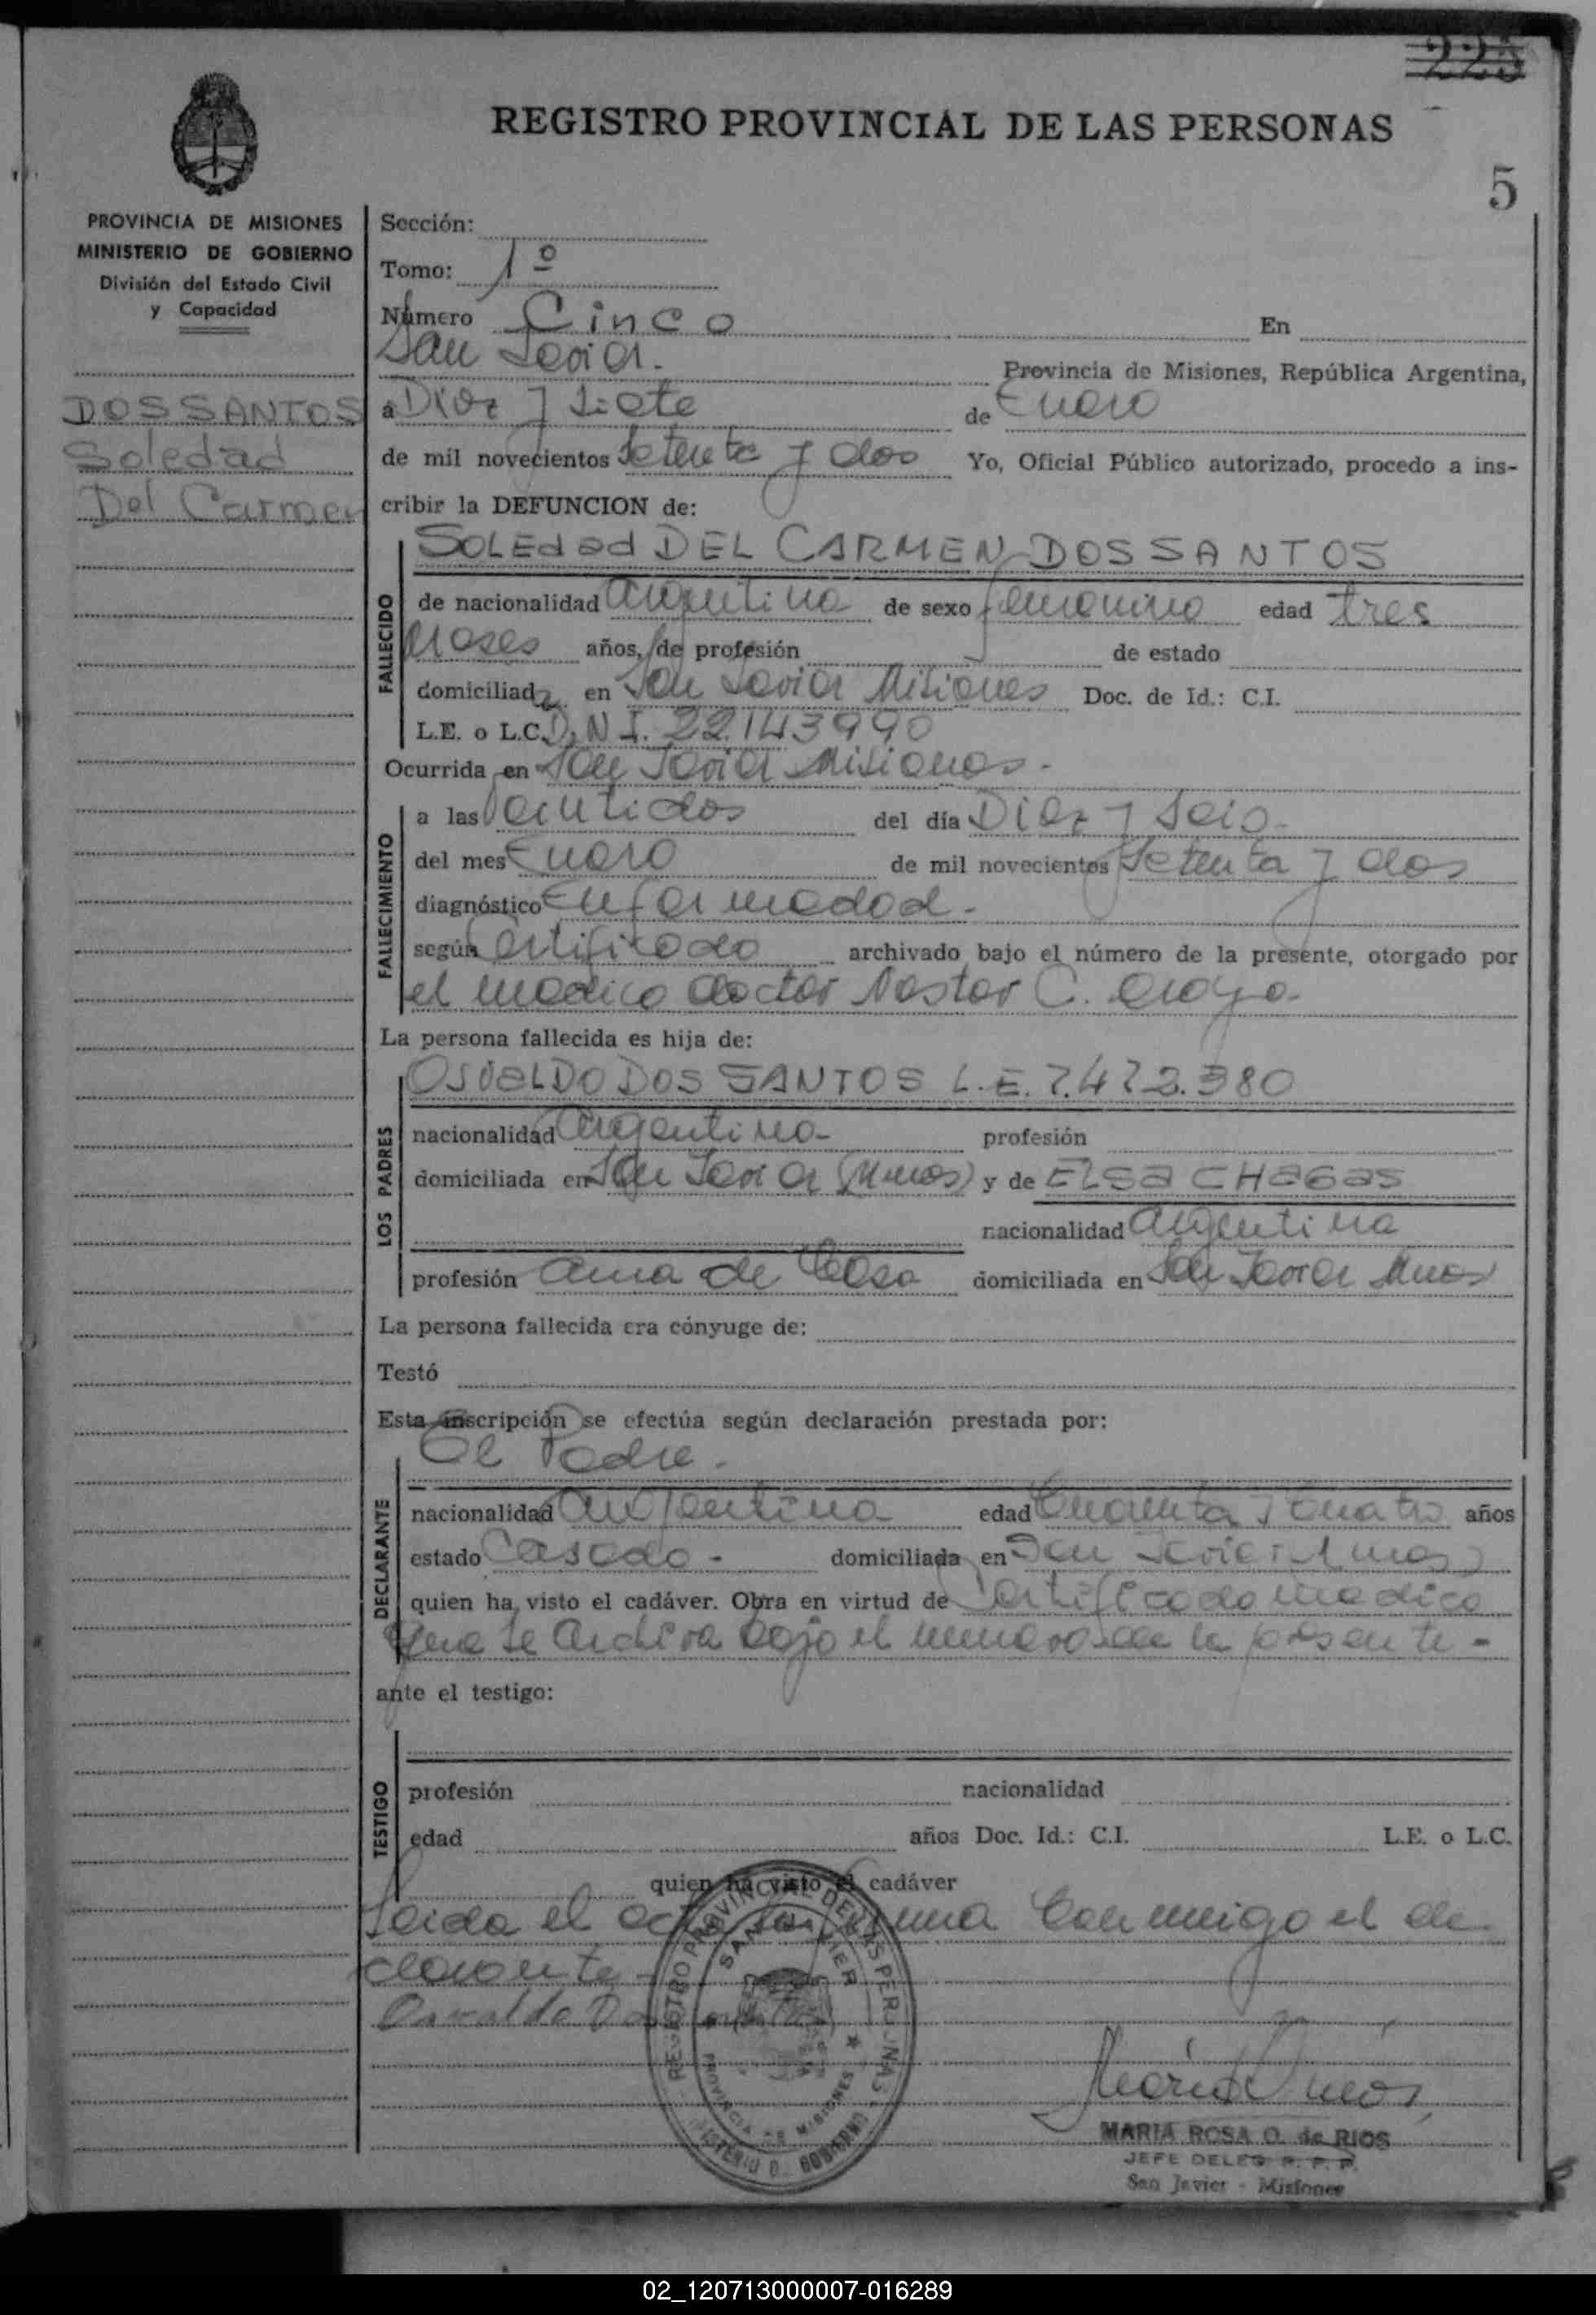 225
REGISTRO PROVINCIAL DE LAS PERSONAS
5
PROVINCIA DE MISIONES
MINISTERIO DE GOBIERNO
División del Estado Civil
y Capacidad
DOS SANTOS
Soledad
Del Carmen
Sección:
Tomo: 1º
Número Cinco En
San Javier. Provincia de Misiones, República Argentina,
a Diez y Siete de Enero
de mil novecientos Setenta y dos Yo, Oficial Público autorizado, procedo a ins-
cribir la DEFUNCION de:
FALLECIDO
SOLEdad DEL CARMEN DOS SANTOS
de nacionalidad Argentina de sexo femenino edad tres
meses años, de profesión de estado
domiciliada en San Javier Misiones Doc. de Id.: C.I.
L.E. o L.C. D.N.I. 22.143990
Ocurrida en San Javier Misiones.
FALLECIMIENTO
a las Veintidos del día Diez y Seis.
del mes Enero de mil novecientos Setenta y dos
diagnóstico Enfermedad.
según Certificado archivado bajo el número de la presente, otorgado por
el medico doctor Nestor C.
La persona fallecida es hija de:
LOS PADRES
OSVALDO DOS SANTOS L.E. 7.472.380
nacionalidad Argentina profesión
domiciliada en San Javier (Mnes) y de ELSA CHAGAS
nacionalidad Argentina
profesión Ama de Casa domiciliada en San Javier Mnes
La persona fallecida era cónyuge de:
Testó
Esta inscripción se efectúa según declaración prestada por:
DECLARANTE
El Padre.
nacionalidad Argentina edad Cuarenta y Cuatro años
estado Casado - domiciliada en San Javier (Mnes)
quien ha visto el cadáver. Obra en virtud de Certificado medico
que se archiva bajo el numero de la presente -
ante el testigo:
TESTIGO
profesión nacionalidad
edad años Doc. Id.: C.I. L.E. o L.C.
quien ha visto el cadáver
Leida el acta la firma conmigo el de
clarante -
Osvaldo Dos Santos
REGISTRO PROVINCIAL DE LAS PERSONAS
SAN JAVIER
PROVINCIA DE MISIONES
MINISTERIO D. GOBIERNO
MARIA ROSA O. de RIOS
JEFE DELEG R. P. P.
San Javier - Misiones
02_120713000007-016289